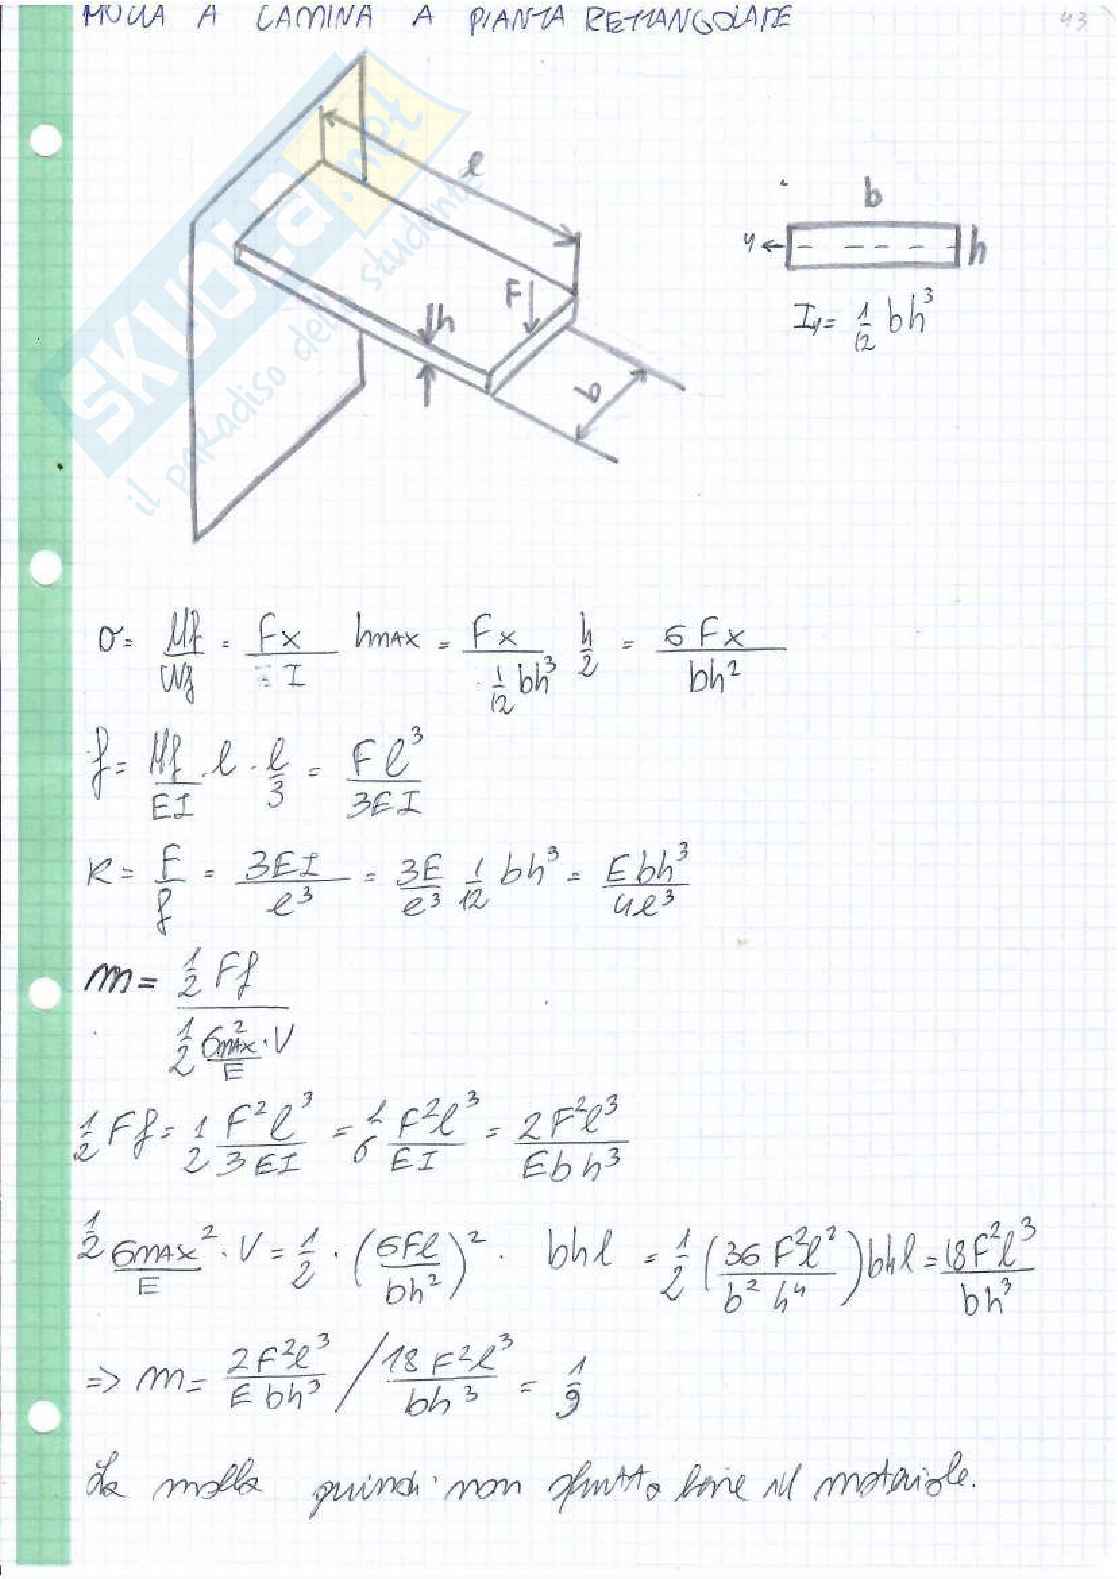 MOLLA A LAMINA A PIANTA RETTANGOLARE
43
SKUOLA.net
il paradiso dello studente
l
F
h
b
b
y h
Iy = 1/12 bh³
σ = Mf/Wf = Fx/I hMAX = Fx/(1/12 bh³) h/2 = 6Fx/bh²
f = Mf/EI · l · l/3 = Fl³/3EI
K = F/f = 3EI/l³ = 3E/l³ 1/12 bh³ = Ebh³/4l³
m = (1/2 Ff)/(1/2 σMAX²/E · V)
1/2 Ff = 1/2 F²l³/3EI = 1/6 F²l³/EI = 2F²l³/Ebh³
1/2 σMAX²/E · V = 1/2 · (6Fl/bh²)² · bhl = 1/2 (36F²l²/b²h⁴) bhl = 18F²l³/bh³
=> m = 2F²l³/Ebh³ / 18F²l³/bh³ = 1/9
La molla quindi non sfrutta bene il materiale.